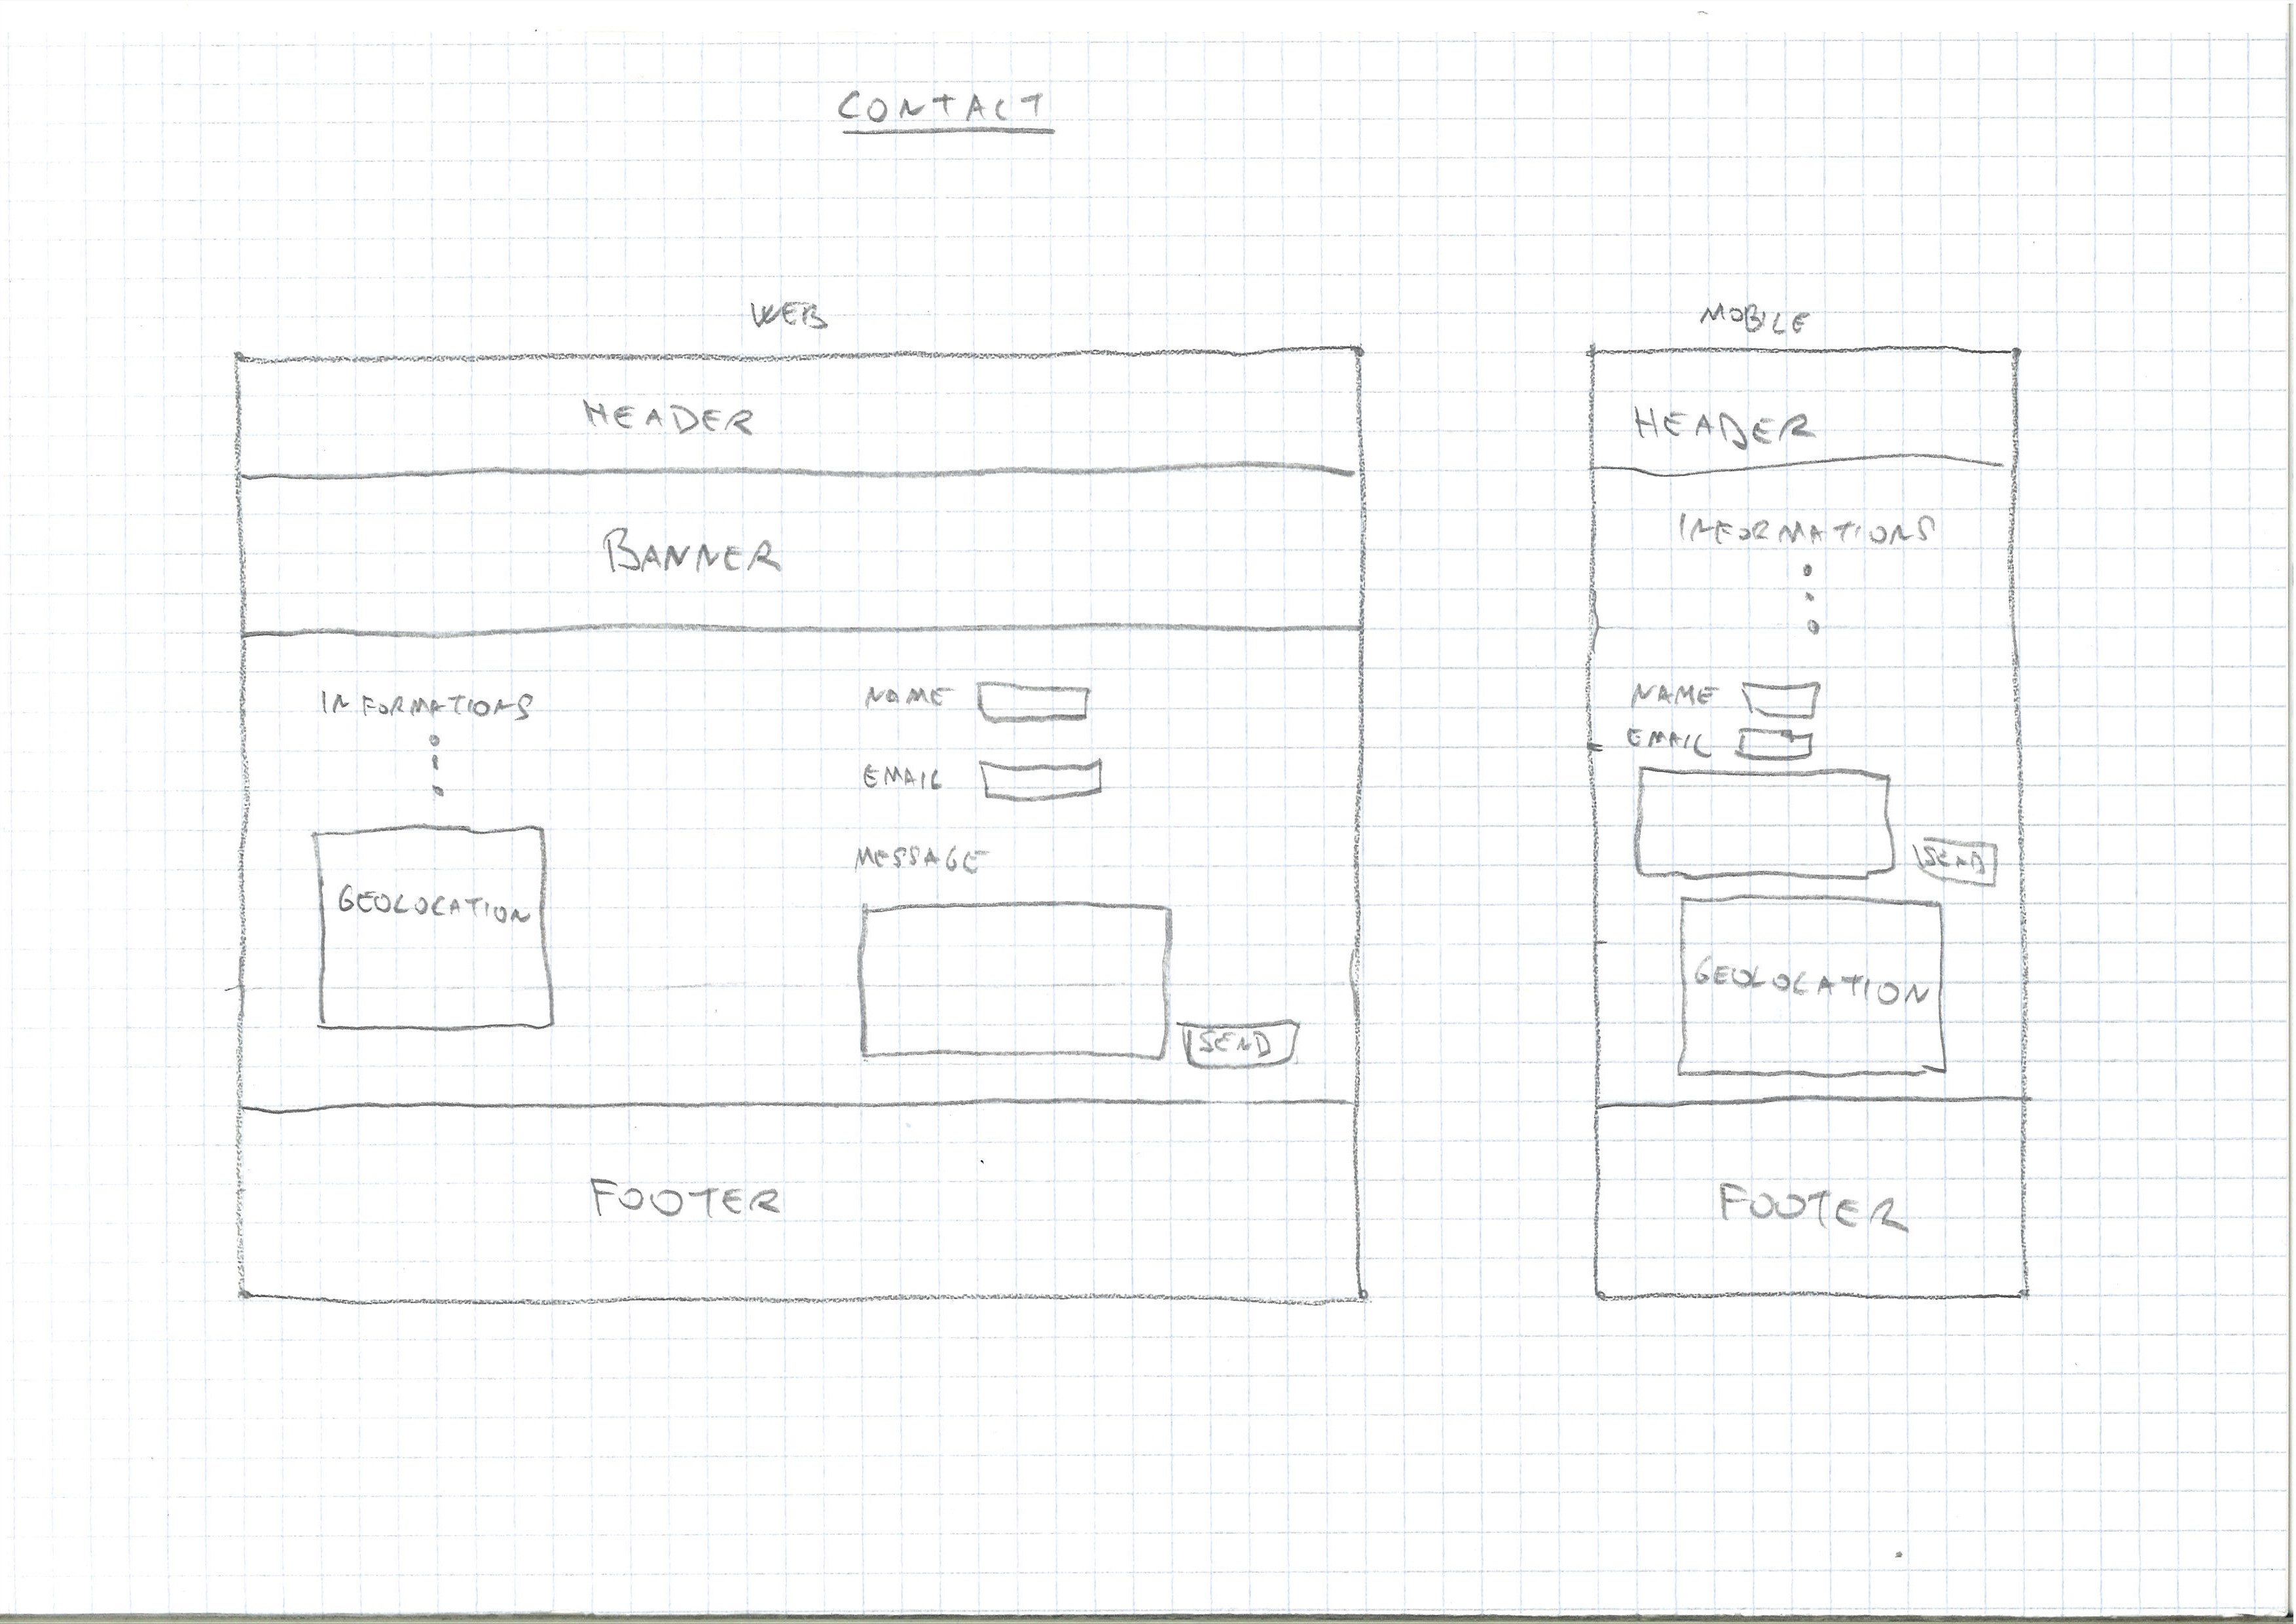 CONTACT
WEB
HEADER
BANNER
INFORMATIONS
GEOLOCATION
NAME
EMAIL
MESSAGE
SEND
FOOTER
MOBILE
HEADER
INFORMATIONS
NAME
EMAIL
SEND
GEOLOCATION
FOOTER